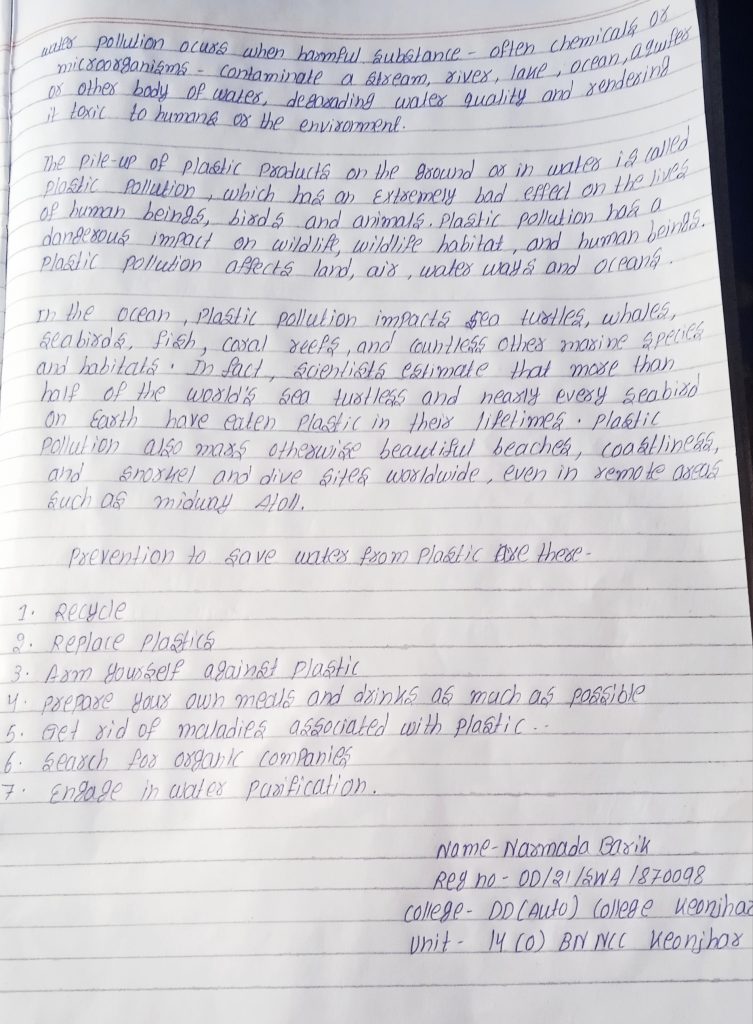 water pollution ocurs when harmful substance - often chemicals or
microorganisms - contaminate a stream, river, lake, ocean, aquifer
or other body of water, degrading water quality and rendering
it toxic to humans or the environment.
The pile-up of plastic products on the ground or in water is called
plastic pollution, which has an extremely bad effect on the lives
of human beings, birds and animals. plastic pollution has a
dangerous impact on wildlife, wildlife habitat, and human beings.
plastic pollution affects land, air, water ways and oceans.
In the ocean, plastic pollution impacts sea turtles, whales,
seabirds, fish, coral reefs, and countless other marine species
and habitats. In fact, scientists estimate that more than
half of the world's sea turtless and nearly every seabird
on Earth have eaten plastic in their lifetimes. plastic
pollution also mars otherwise beautiful beaches, coastliness,
and snorkel and dive sites worldwide, even in remote areas
such as midway Atoll.
Prevention to save water from plastic are these-
1. Recycle
2. Replace plastics
3. Arm yourself against plastic
4. prepare your own meals and drinks as much as possible
5. Get rid of maladies associated with plastic..
6. search for organic companies
7. Engage in water purification.
Name- Narmada Barik
Reg no - OD/21/SWA/870098
College- DD(Auto) College Keonjhar
Unit - 14 (O) BN NCC Keonjhar